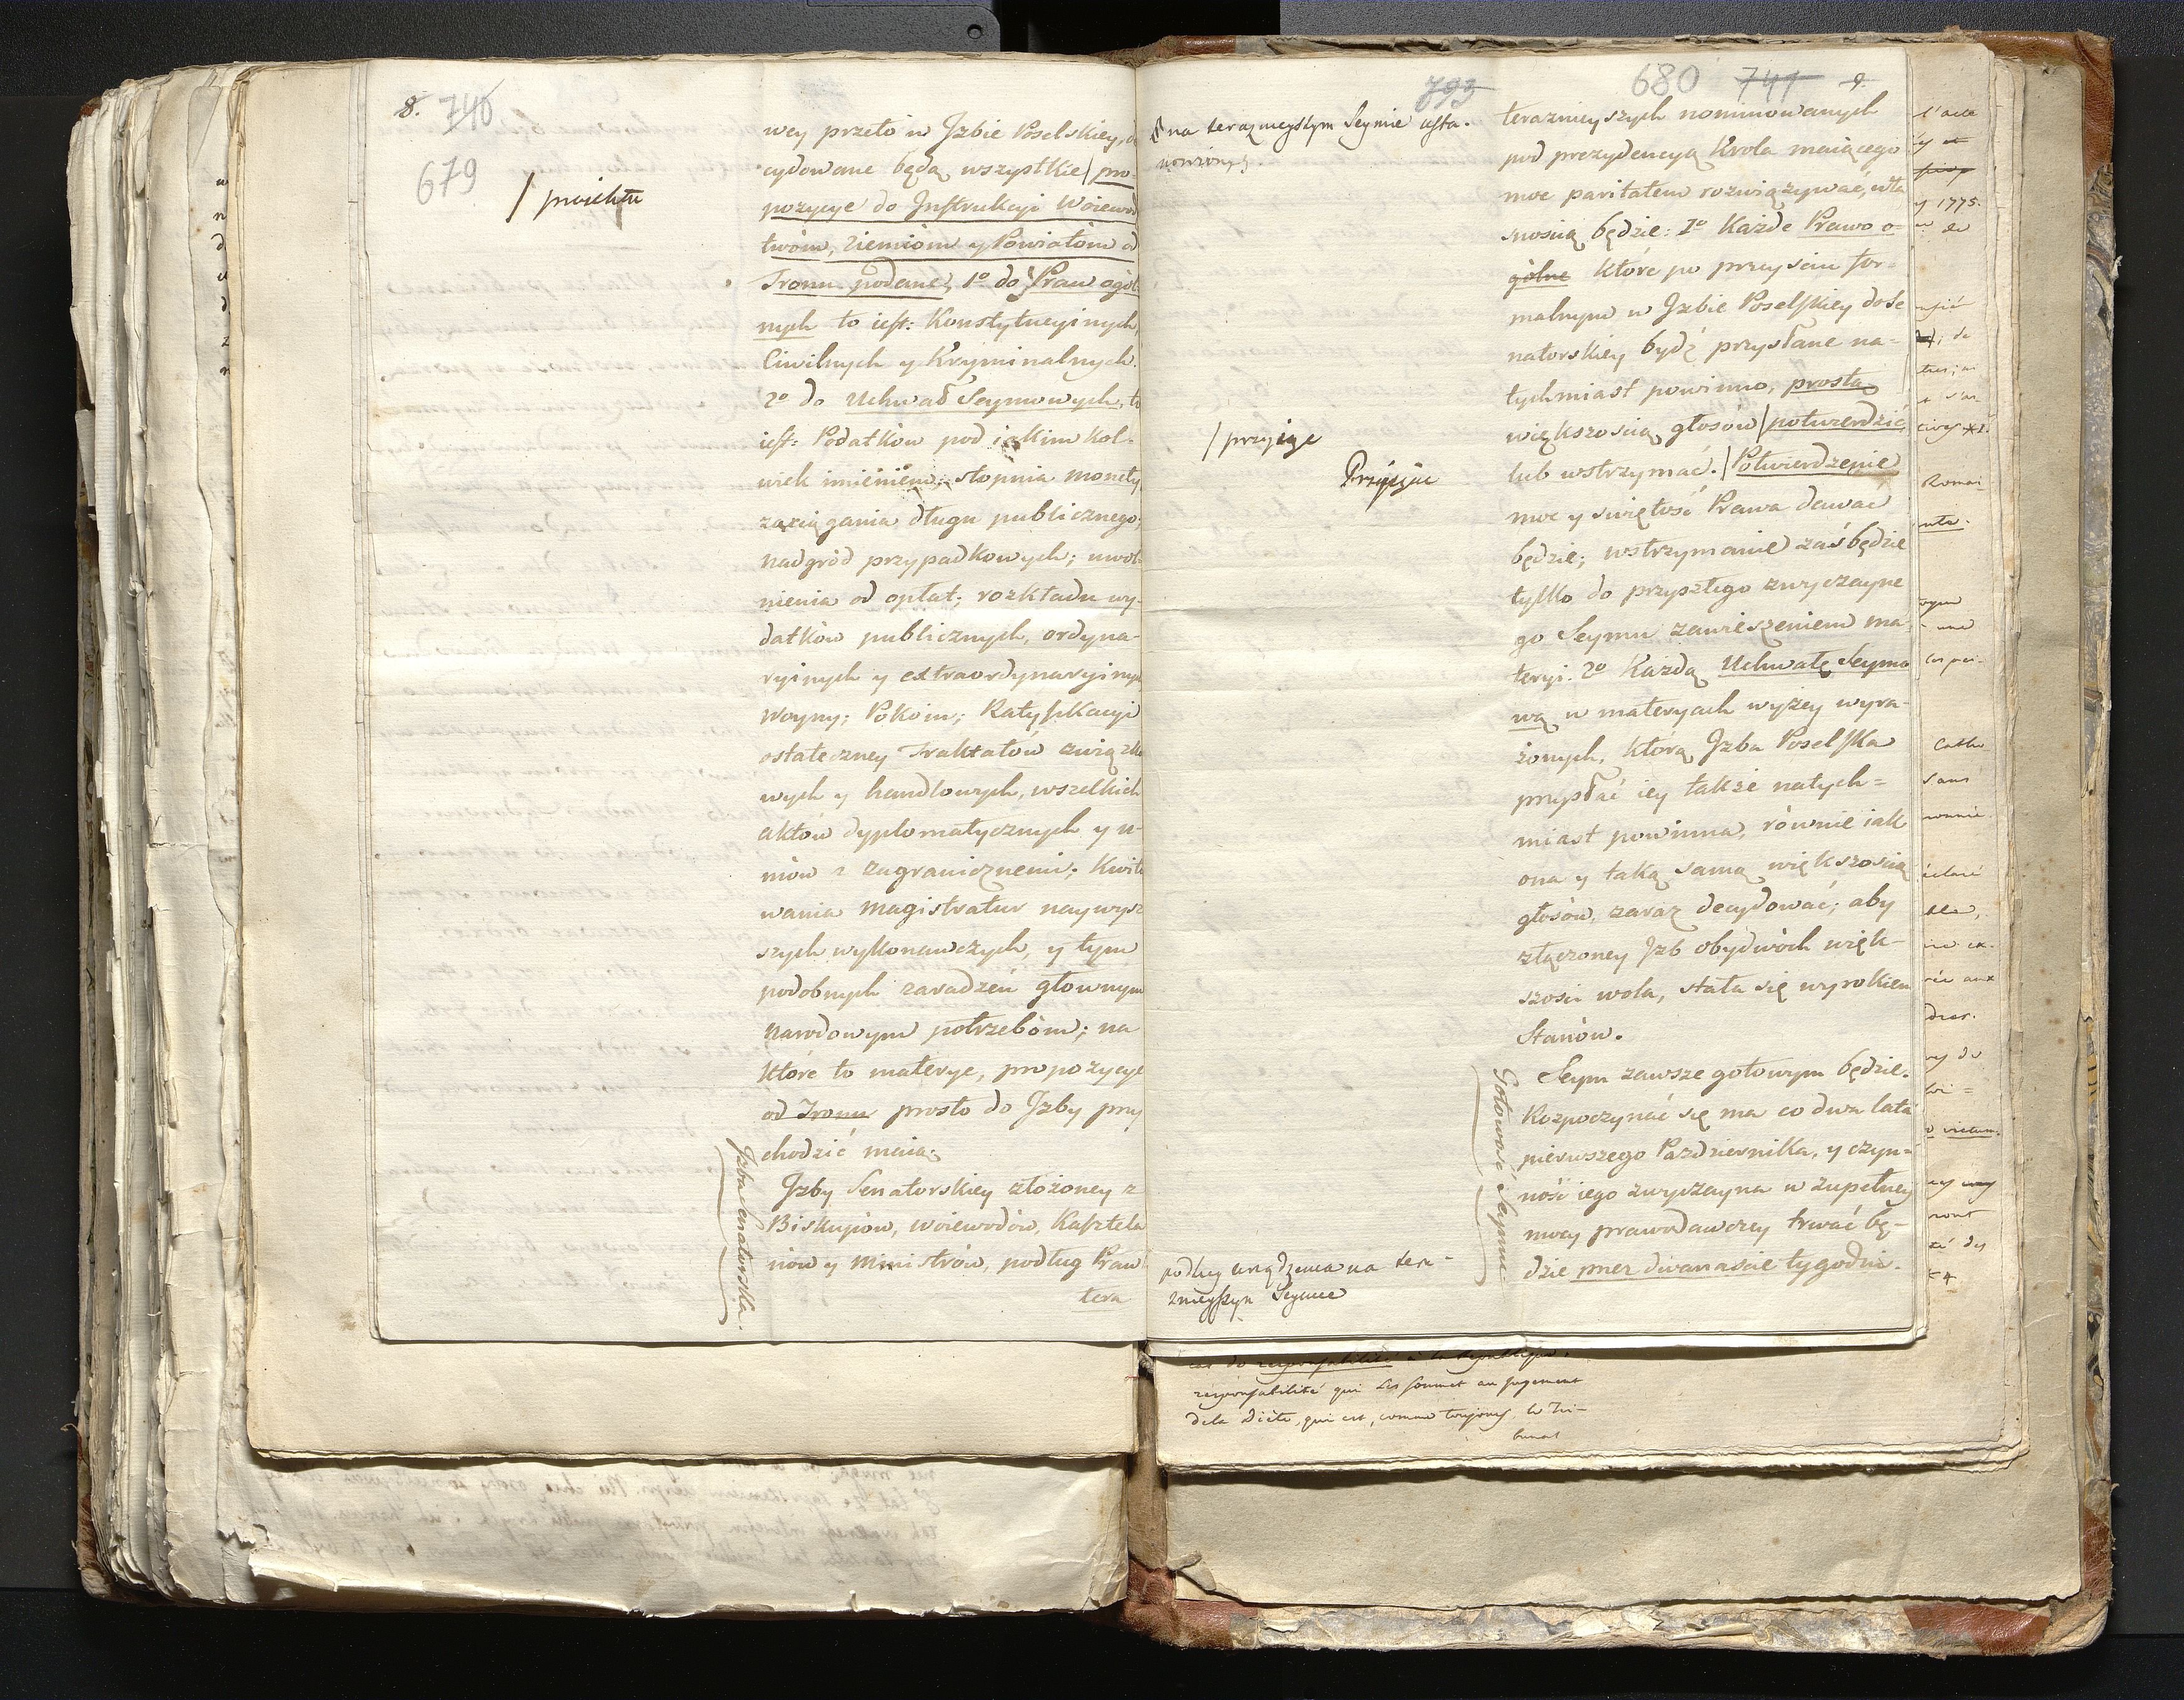 8. 740
679
/ proiekta
wey przeto w Jzbie Poselskiey, de
cydowane będą wszystkie / pro-
pozycye do Jnstrukcyi Woiewod
twóm, ziemióm y Powiatóm od
Tronu podane, 1º do Praw ogól
nych to iest: Konstytucyinych,
Civilnych y Kryminalnych.
2º do Uchwał Seymowych, to
iest: Podatków pod iakim kol-
wiek imieniem; stopnia monety,
zaciągania długu publicznego;
nadgród przypadkowych; uwol-
nienia od opłat; rozkładu wy-
datków publicznych, ordyna-
ryinych y extraordynaryinych
Woyny; Pokoiu; Ratyfikacyi
ostateczney Traktatów związko
wych y handlowych, wszelkich
aktów dyplomatycznych y u-
mów z zagranicznemi; Kwito
wania Magistratur naywyż
szych wykonawczych, y tym
podobnych zaradzeń głownym
Narodowym potrzebóm; na
które to materye, propozycye
od Tronu prosto do Jzby przy
chodzić maią.
Jzba Senatorska.
Jzby Senatorskiey złożoney z
Biskupów, Woiewodów, Kasztela
nów y Ministrów, podług Praw
tera
793
680 741 9.
na teraznieyszym Seymie usta-
nowionych.
/ przyięte
Przyięcie
podług urządzenia na tera-
znieyszym Seymie
teraznieyszych nominowanych
pod prezydencyą Krola maiącego
moc paritatem rozwiązywać, wła
snoscią będzie: 1º Każde Prawo o-
gólne które po przeysciu for-
malnym w Jzbie Poselskiey do Se
natorskiey bydź przysłane na-
tychmiast powinno, prostą
większoscią głosów / potwierdzić,
lub wstrzymać. / Potwierdzenie
moc y swiętość Prawa dawać
będzie; wstrzymanie zaś będzie
tylko do przyszłego zwyczayne
go Seymu zawieszeniem ma
teryi. 2º Każdą Uchwałę Seymo
wą w materyach wyżey wyra-
żonych, którą Jzba Poselska
przysłać iey także natych=
miast powinna, równie iak
ona y taką samą większoscią
głosów, zaraz decydować; aby
złączoney Jzb obydwóch więk-
szosci wola, stała się wyrokiem
Stanów.
Gotowość Seymu
Seym zawsze gotowym będzie.
Rozpoczynać się ma co dwa lata
pierwszego Pazdziernika, y czyn-
ność iego zwyczayna w zupełney
mocy prawodawczey trwać bę-
dzie przez dwanascie tygodni.
l'acte
y 1775.
Romai-
Catho-
sans
ble,
rée aux
vent
responsabilité qui les soumet au jugement
dela Diète, qui est, comme toujours le Tri-
bunal